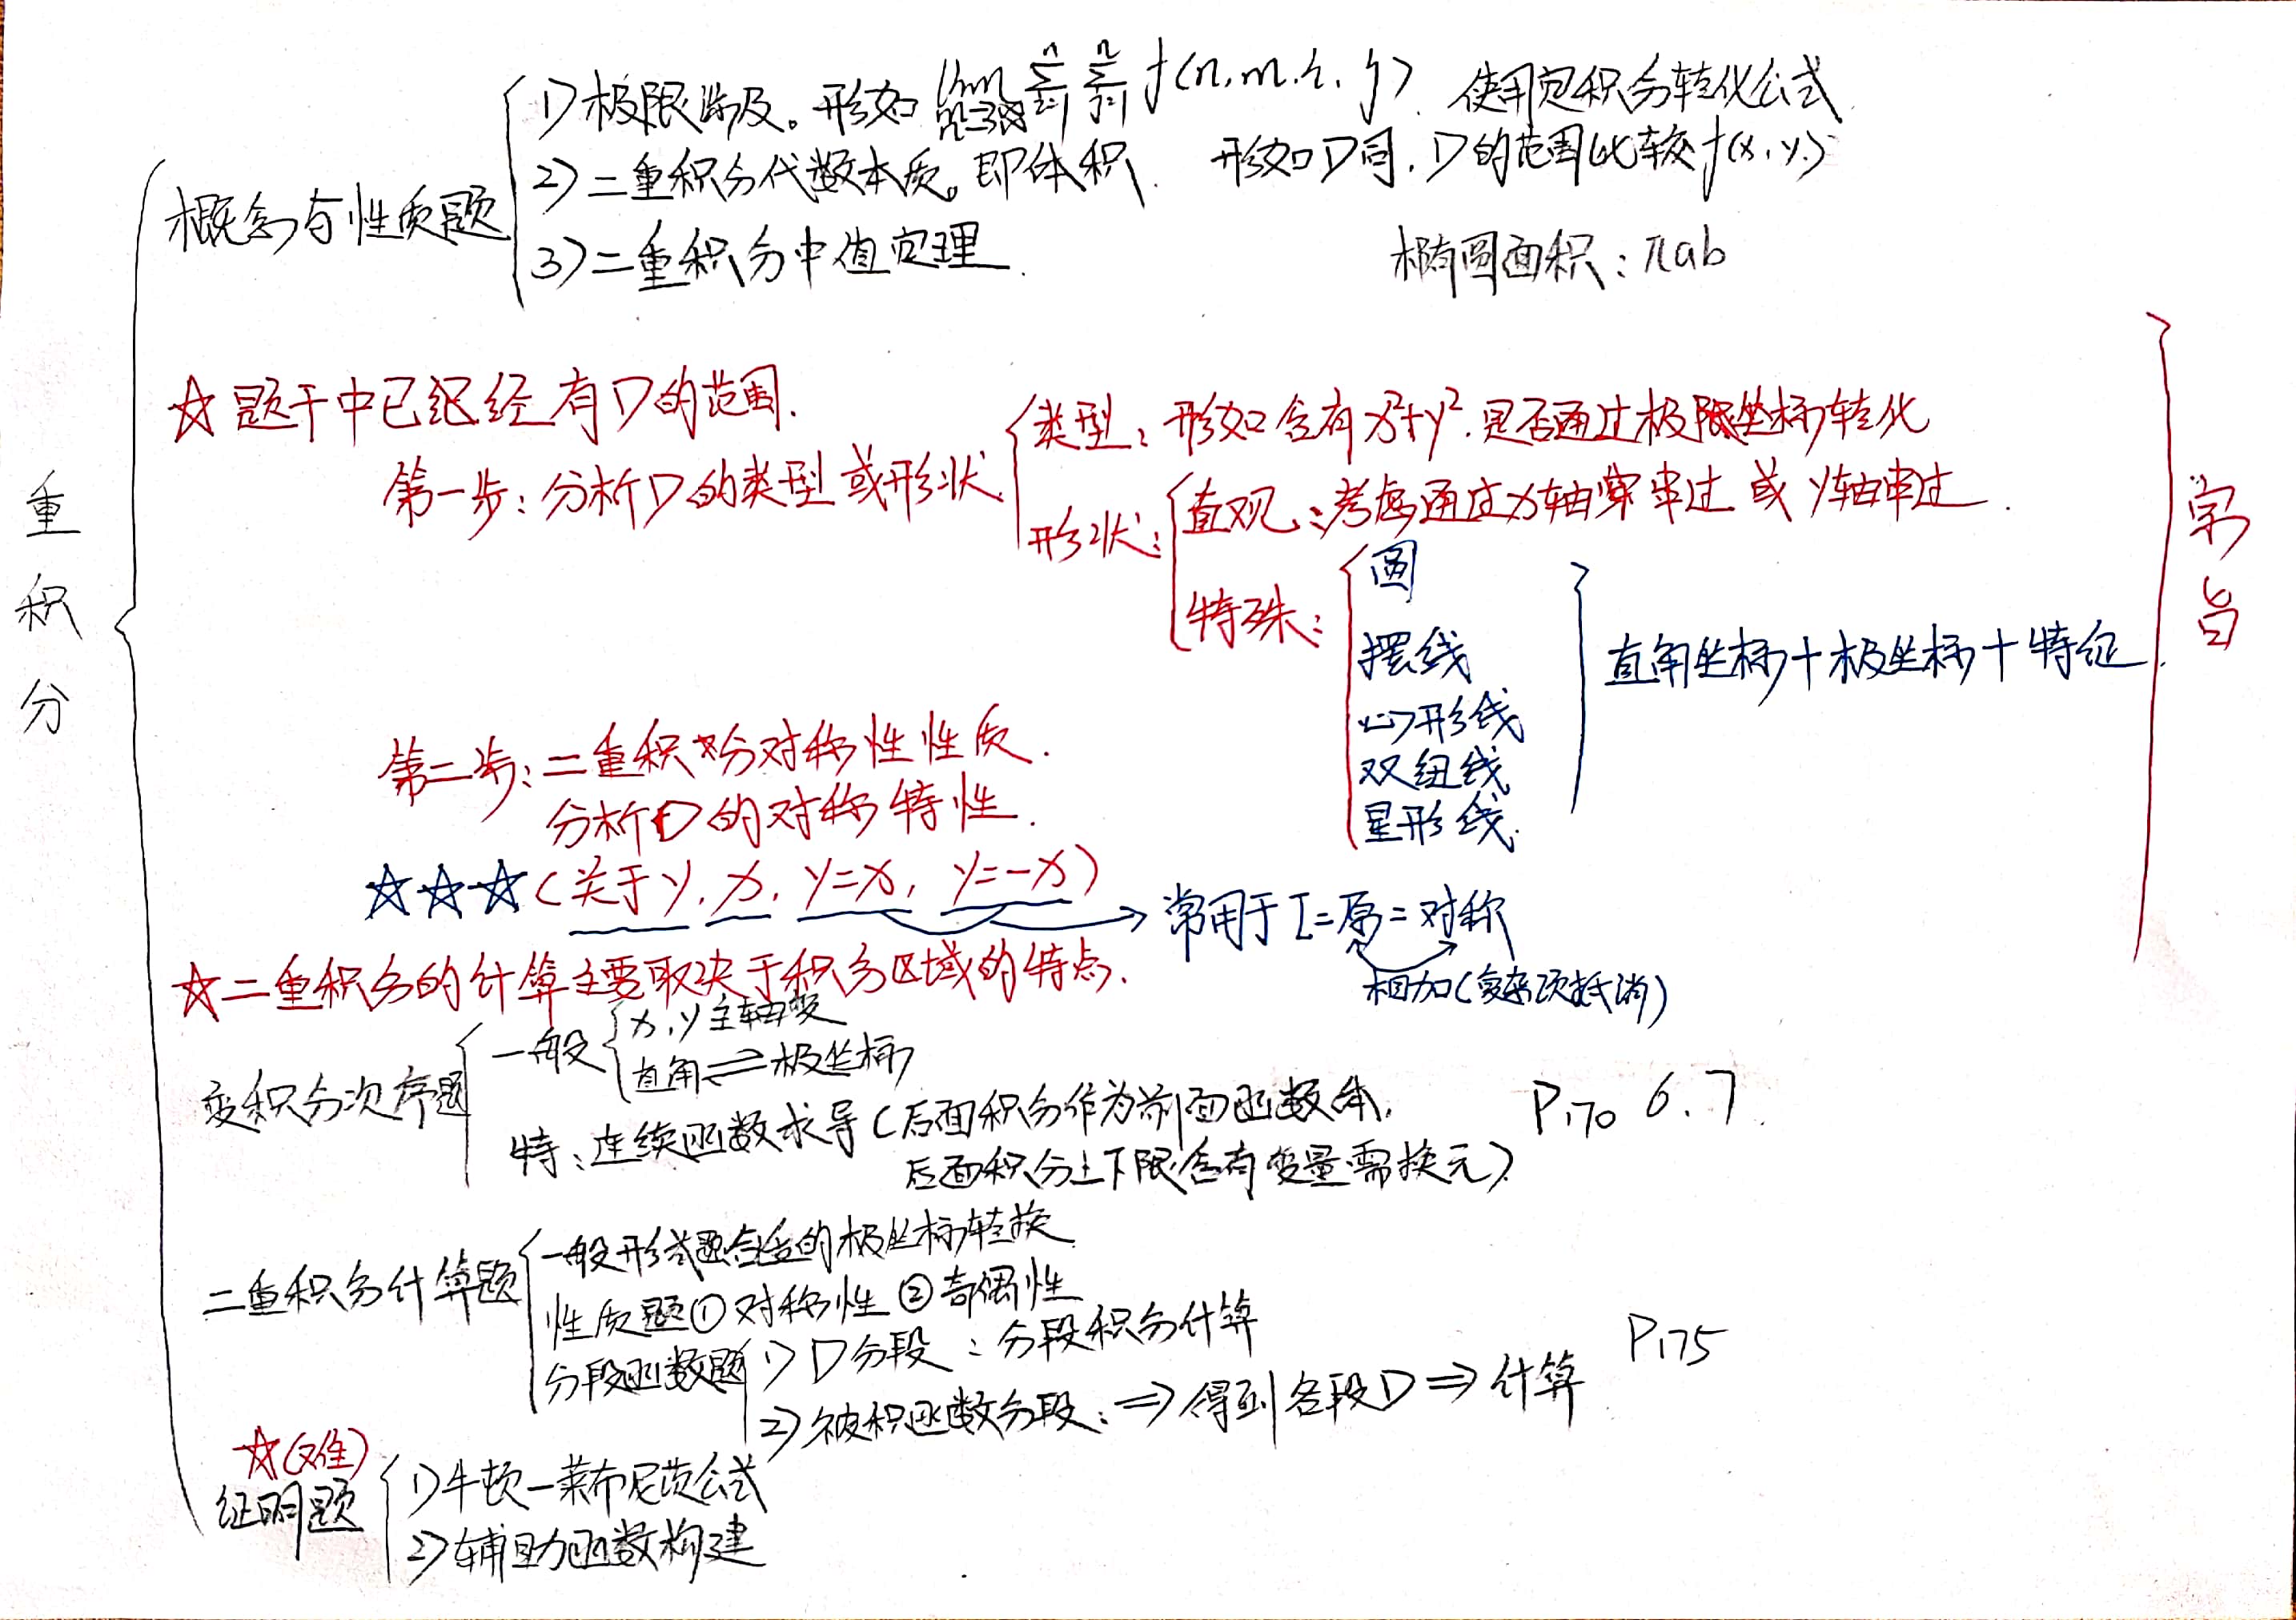 重积分
概念与性质题
1) 极限涉及。形如 lim n→∞ ∑ i=1 n ∑ j=1 n f(n,m,i,j). 使用定积分转化公式
2) 二重积分代数本质。即体积. 形如D同, D的范围比较f(x,y)
3) 二重积分中值定理.
椭圆面积:πab
☆ 题干中已经有D的范围.
第一步:分析D的类型或形状
类型:形如含有x²+y².是否通过极坐标转化
形状:
直观:考虑通过x轴穿过或y轴穿过.
特殊:
圆
摆线
心形线
双纽线
星形线.
直角坐标+极坐标+特征.
宗旨
第二步:二重积分对称性性质.
分析D的对称特性.
☆☆☆(关于y, x, y=x, y=-x)
常用于I=原=对称
相加(复杂项抵消)
☆二重积分的计算主要取决于积分区域的特点.
变积分次序题
一般
x,y主轴变
直角⇌极坐标
特:连续函数求导(后面积分作为前面函数体,
后面积分上下限含有变量需换元)
P170 6.7.
二重积分计算题
一般形式题合适的极坐标转换
性质题①对称性 ②奇偶性
分段函数题
1) D分段:分段积分计算
2) 被积函数分段:⇒得到各段D⇒计算
P175
☆(难)
证明题
1) 牛顿—莱布尼茨公式
2) 辅助函数构建